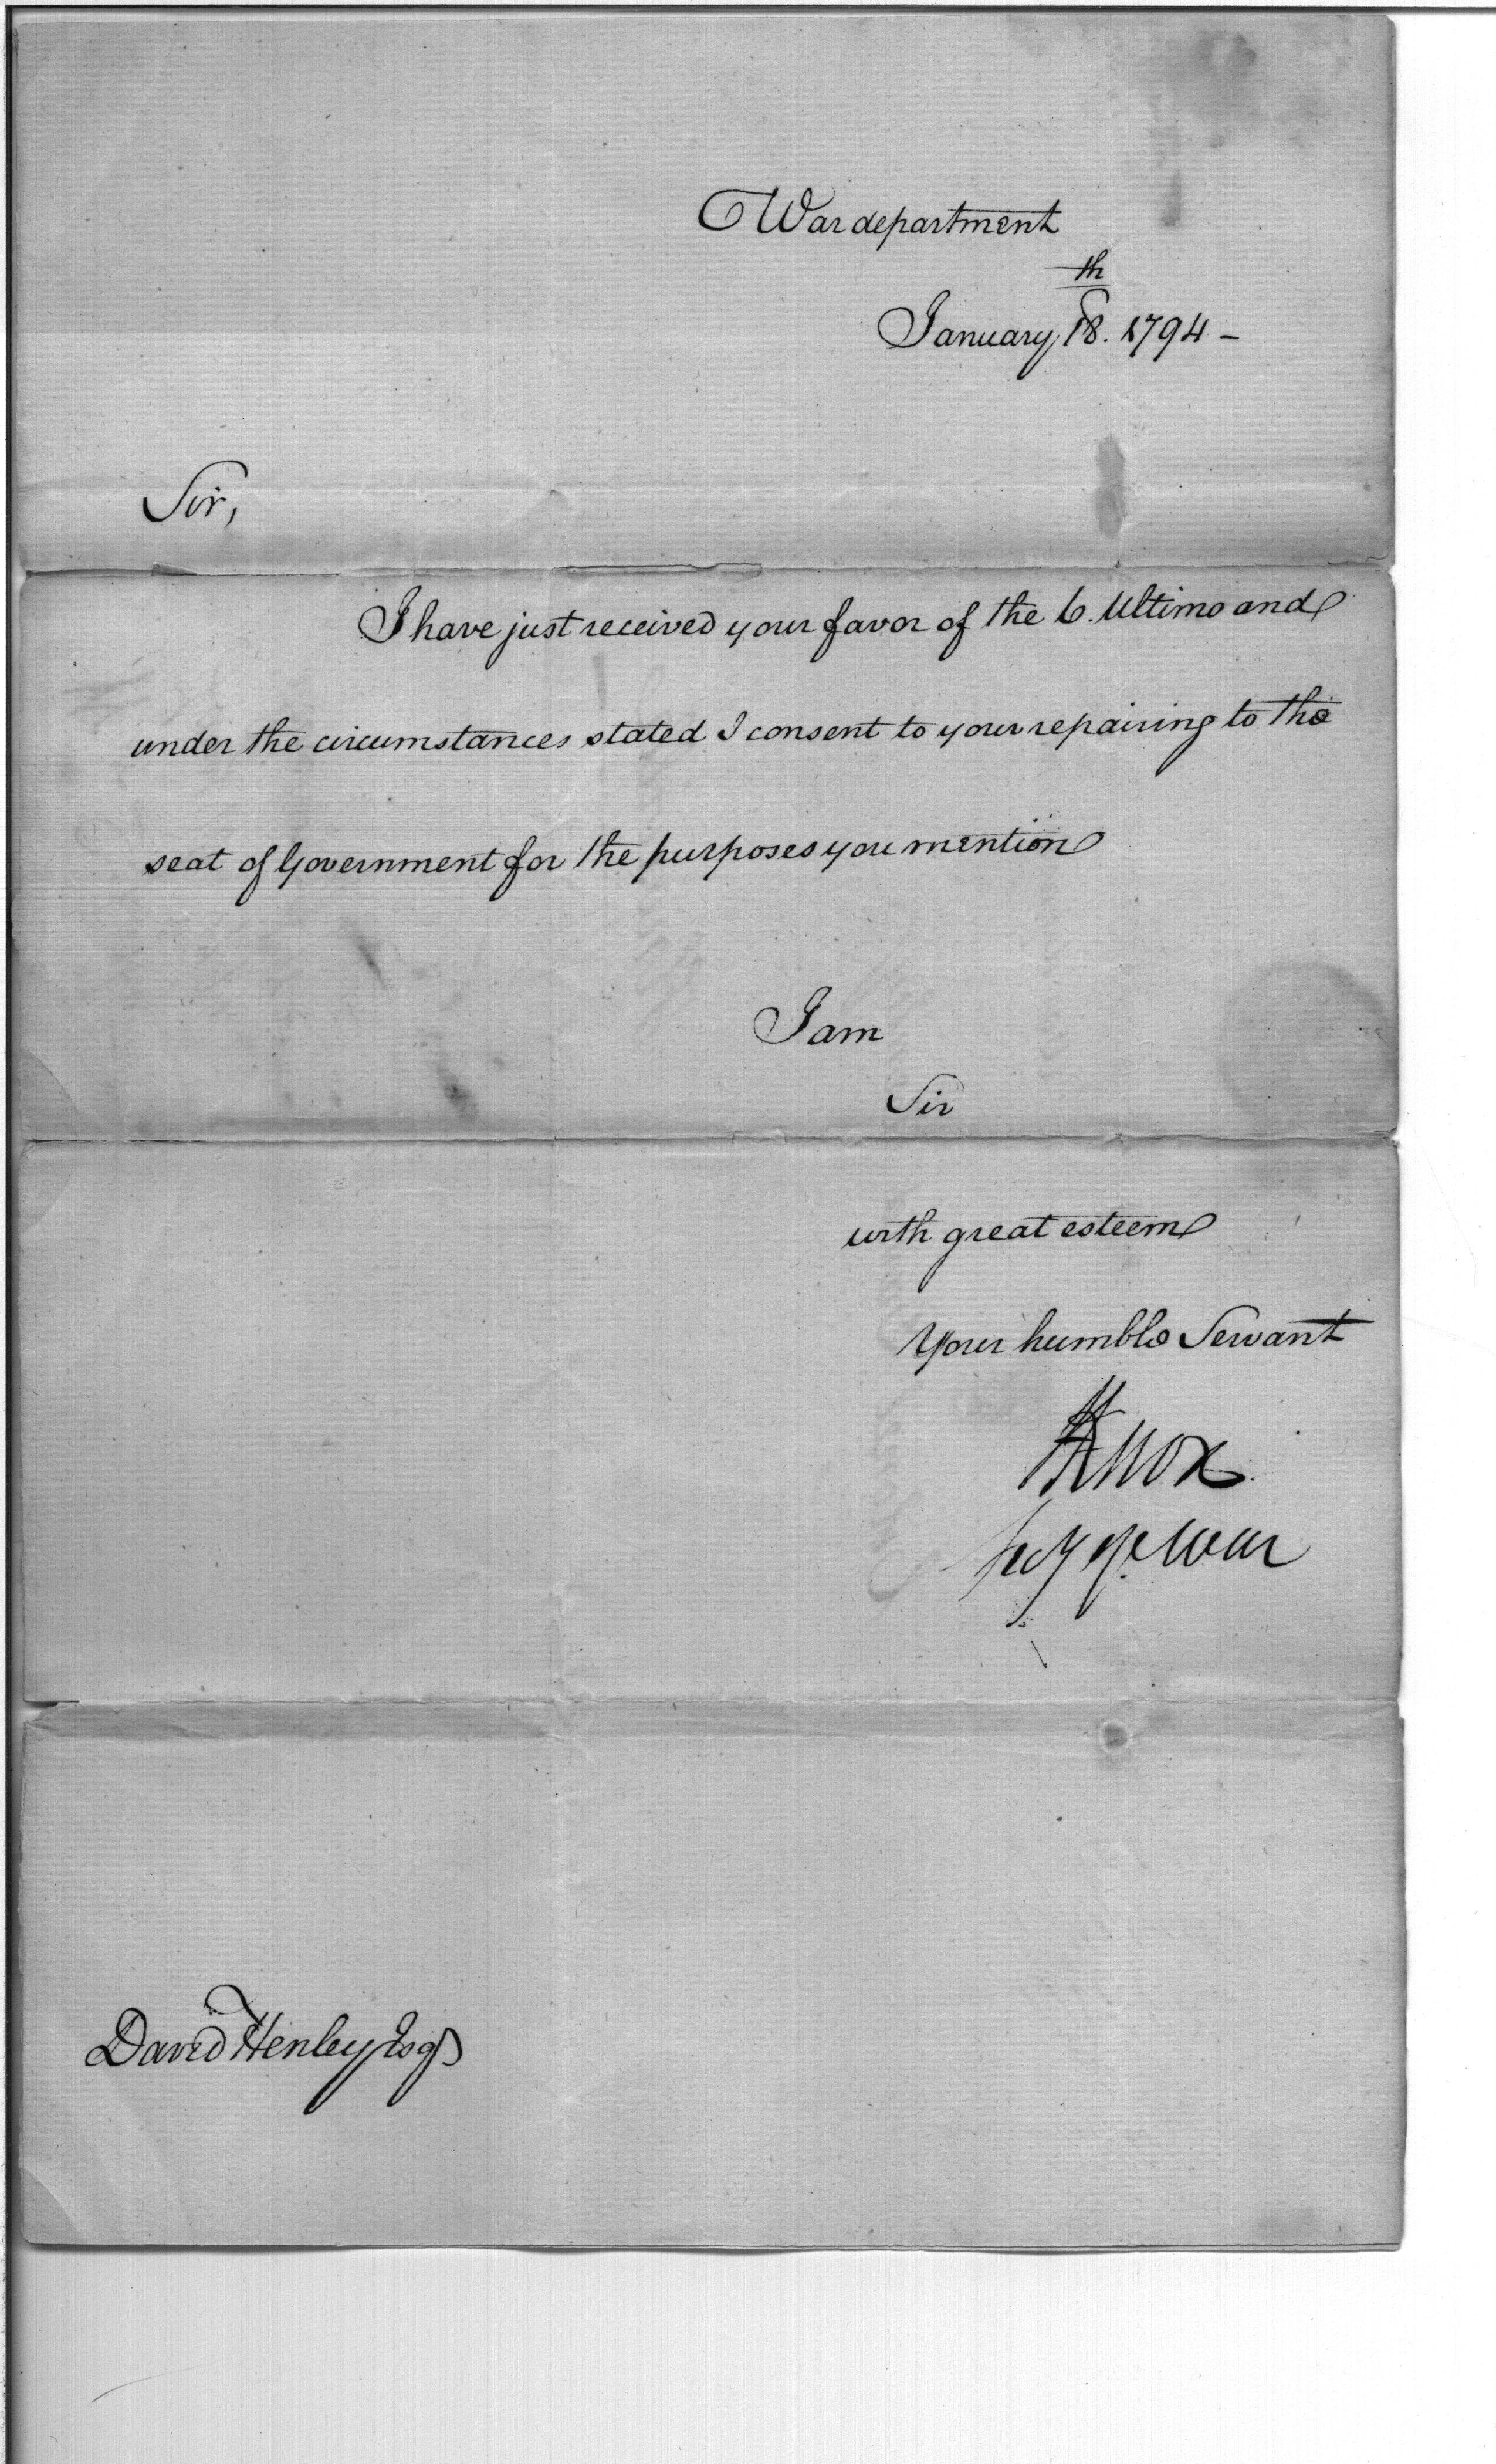 War department
January 18th. 1794 -
Sir,
I have just received your favor of the 6. Ultimo and
under the circumstances stated I consent to your repairing to the
seat of Government for the purposes you mention
I am
Sir
with great esteem
Your humble Servant
HKnox
secy of war
David Henley Esqr